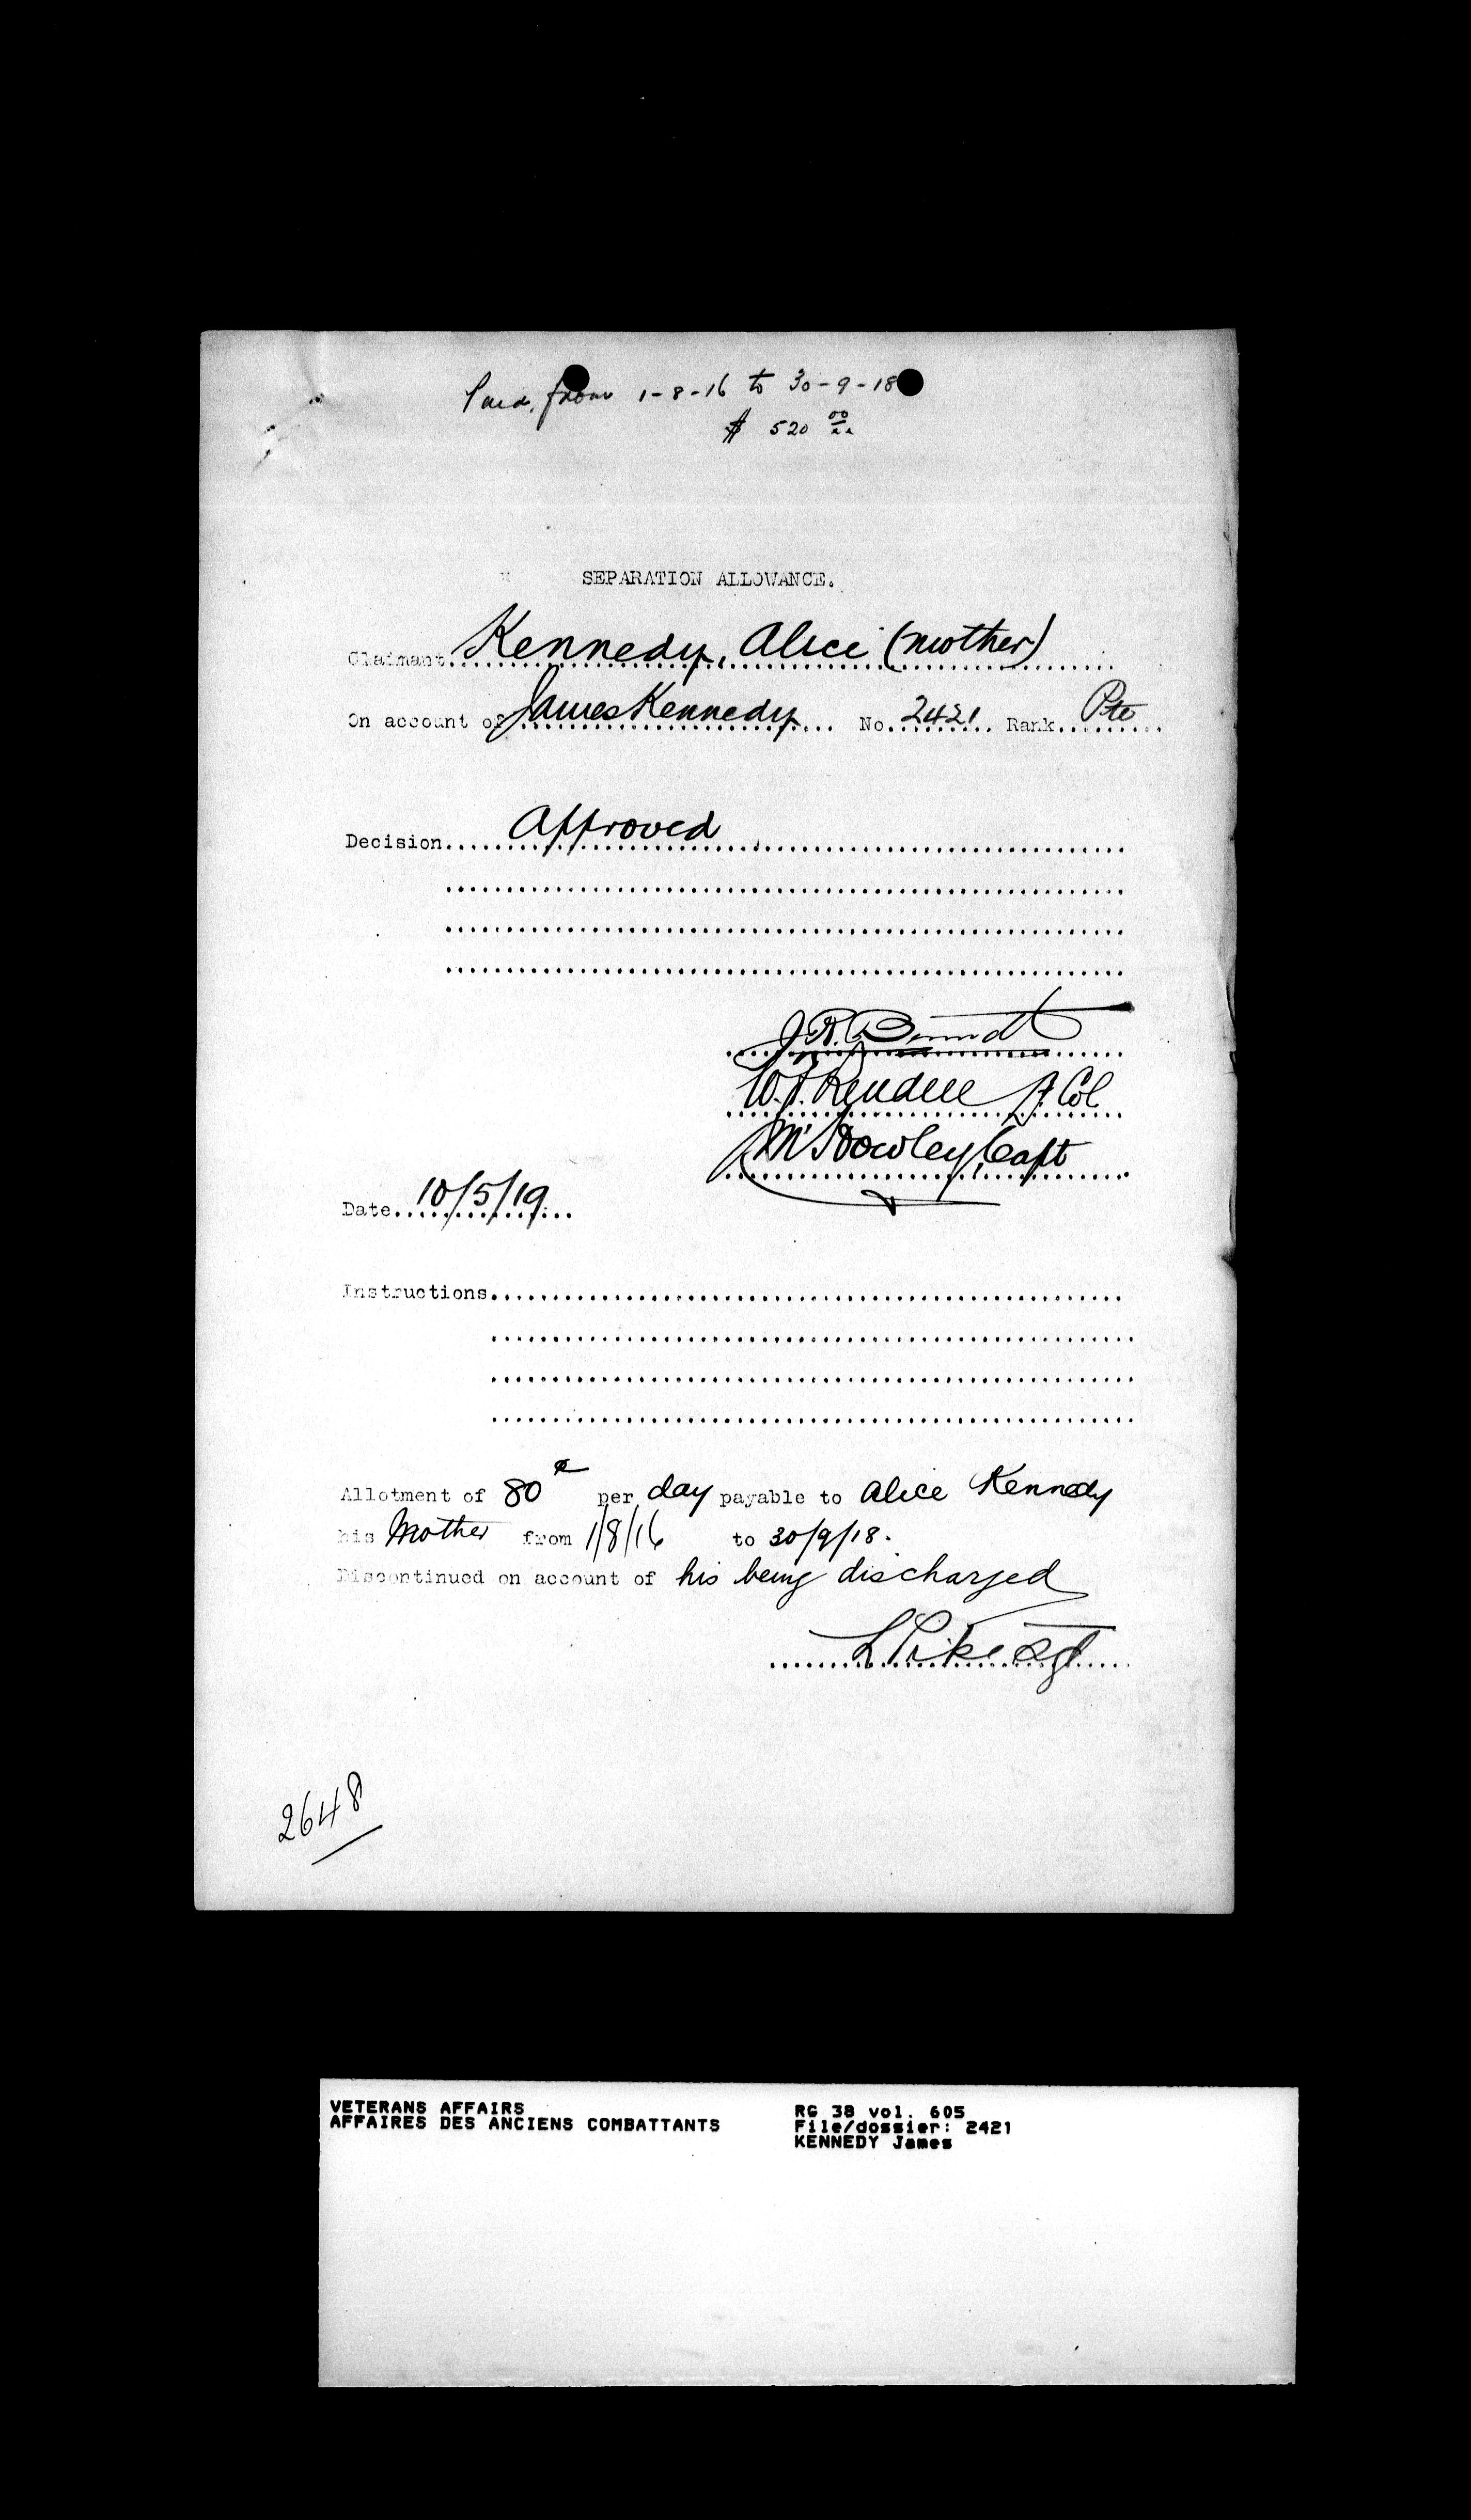 Paid from 1-8-16 to 30-9-18
$ 520 00
SEPARATION ALLOWANCE.
Claimant Kennedy, Alice (mother)
On account of James Kennedy No. 2421 Rank Pte
Decision Approved
J.R. Bennett
W.F. Rendell Lt. Col
M Dowley, Capt
Date 10/5/19
Instructions
Allotment of 80¢ per day payable to Alice Kennedy
his Mother from 1/8/16 to 30/9/18.
Discontinued on account of his being discharged
L Pike Sgt
2648
VETERANS AFFAIRS RG 38 vol. 605
AFFAIRES DES ANCIENS COMBATTANTS File/dossier: 2421
KENNEDY James